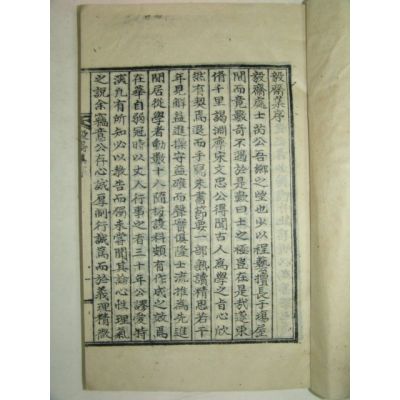 毅齋集序
毅齋處士芮公吾鄉之望也少以程藝擅長于場屋
間而竟數奇不遇於是歎曰士之極豈在是哉遂束
借千里謁淵齋宋文忠公得聞古人爲學之旨心欣
然有契焉退而手寫朱書節要一部熟讀精思若干
年見解益進操守益確而聲實俱隆士流推爲先進
間居從學者動數十人隨材設科頗有作成之效焉
在華自弱冠時以丈人行事之者三十年公謬愛特
深凡有所知必以敎告而獨未嘗聞其論心性理氣
之說余竊意公存心誠厚制行誠篤而於義理精微